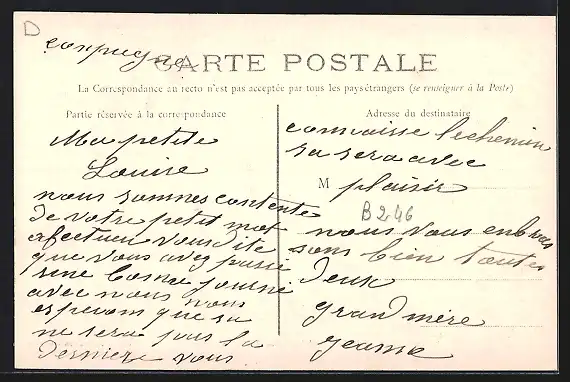 D
CARTE POSTALE
La Correspondance au recto n'est pas acceptée par tous les pays étrangers (se renseigner à la Poste)
Partie réservée à la correspondance
Adresse du destinataire
Ma petite
Louise
nous somnes contente
de votre petit mot
afectueu vous dite
que vous avez passé
une bonne journé
avec nous nous
esperons que sa
ne sera pas la
derniere vous
connaisse le chemin
sa sera avec
M plaisir
B246
nous vous enbras
sons bien toutes
deux
grand mère